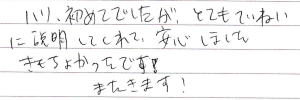 ハリ、初めてでしたが、とてもていねい
に説明してくれて、安心しました
きもちよかったです!
またきます!